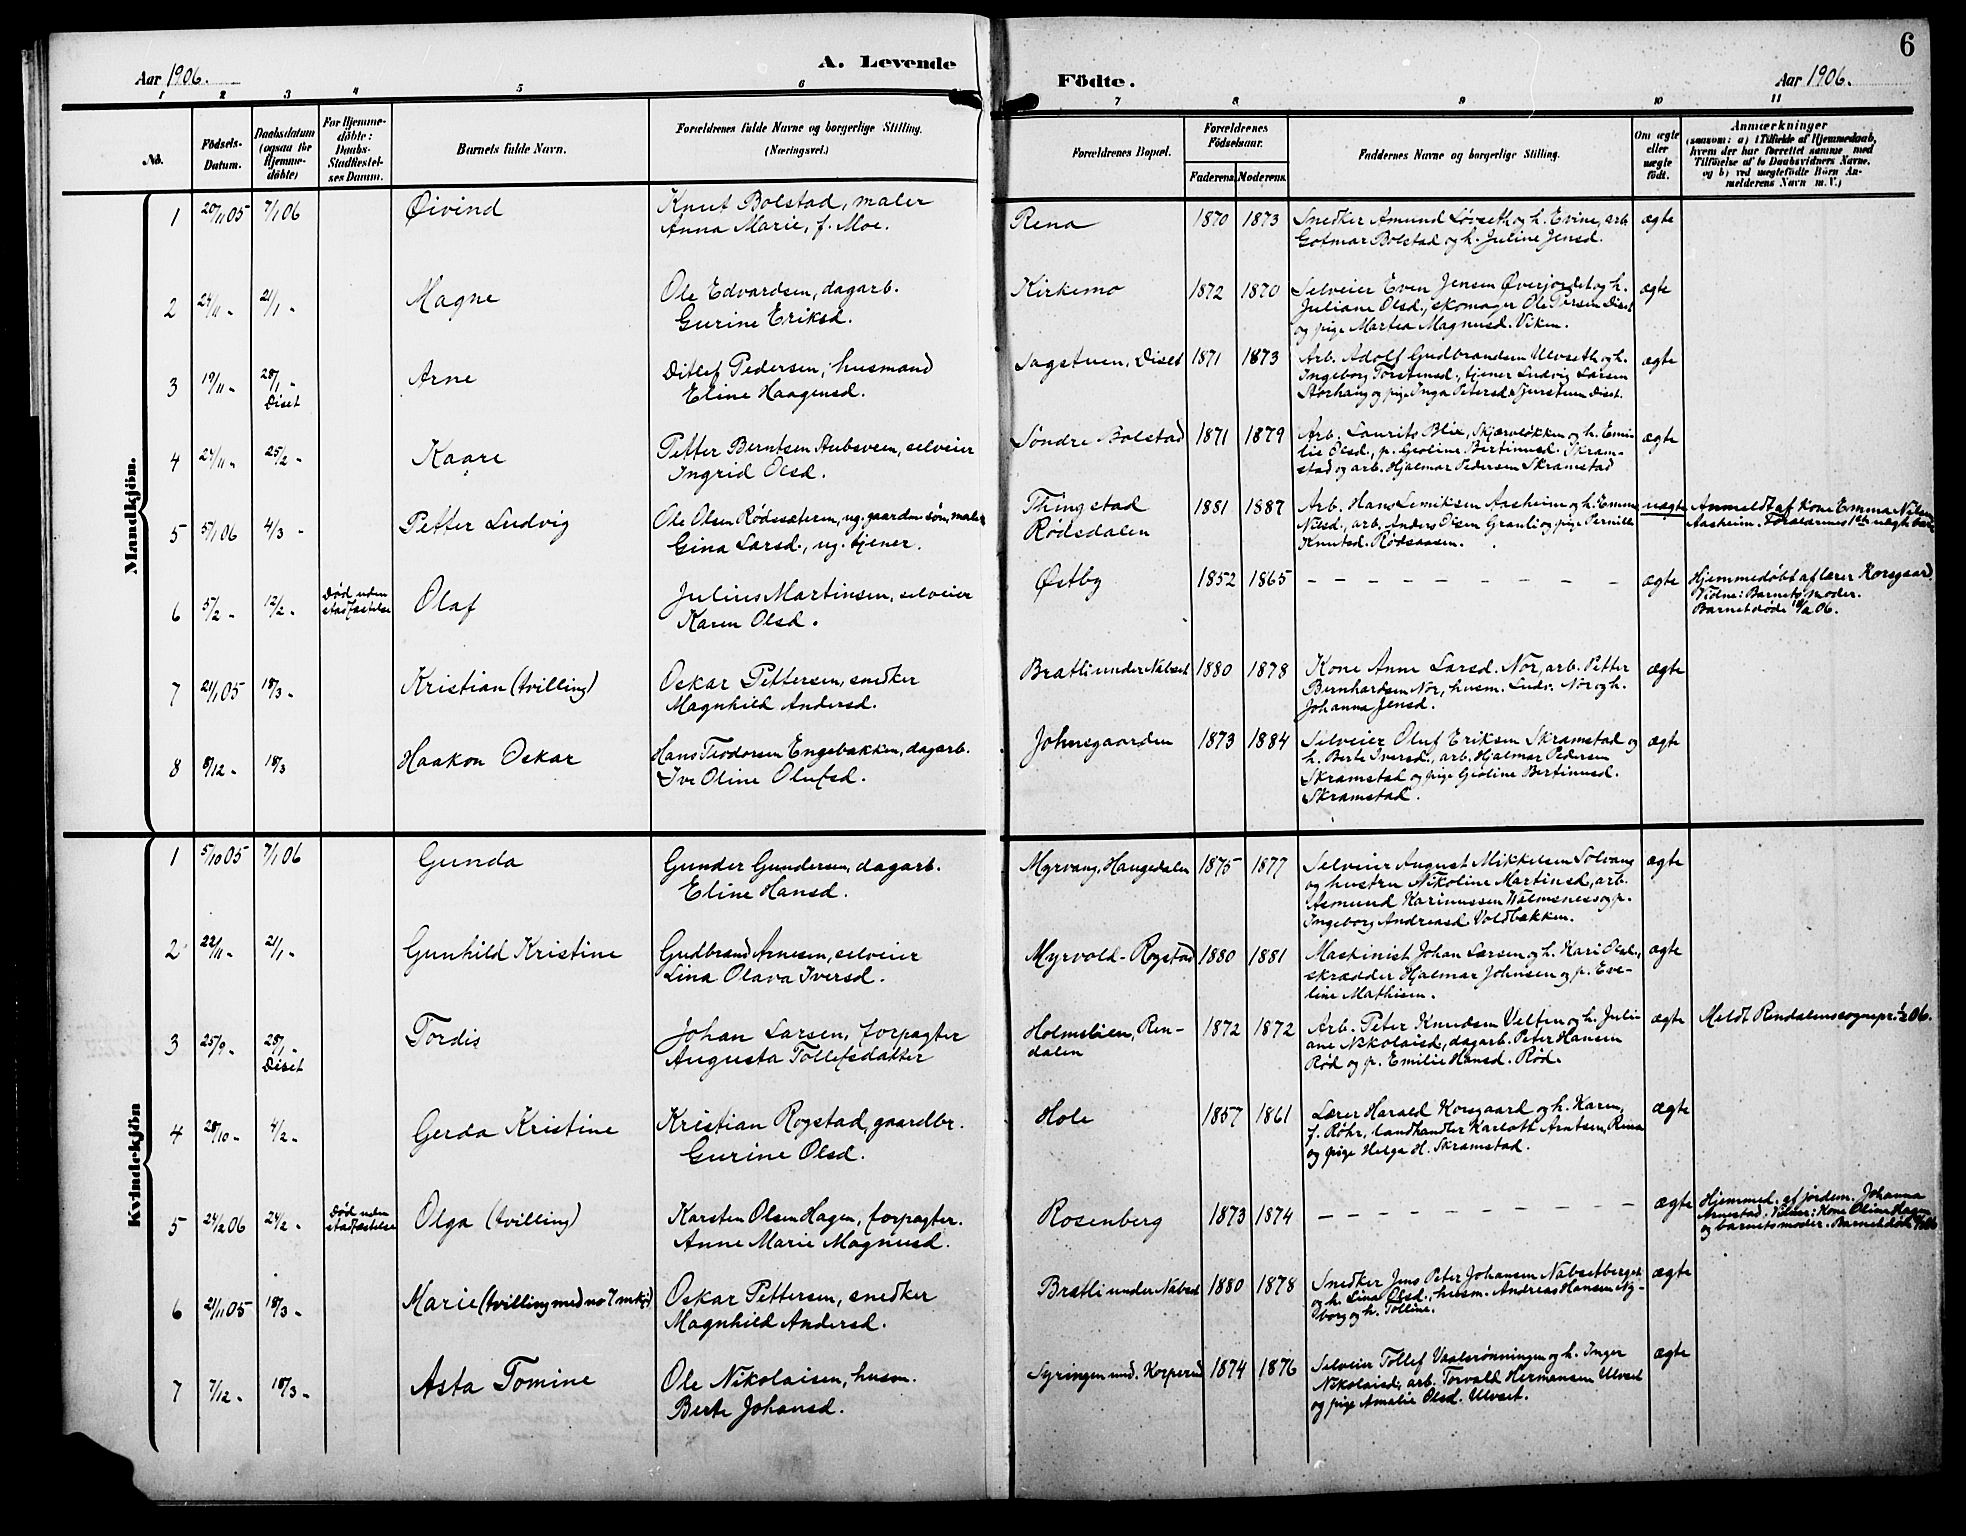 6
Aar 1906.
A. Levende
Födte.
Aar 1906.
1 2 3 4 5 6 7 8 9 10 11
No.
Födsels-
Datum.
Daabsdatum
(ogsaa for
Hjemme-
döbte)
For Hjemme-
döbte:
Daabs-
Stadfæstel-
ses Datum.
Barnets fulde Navn.
Forældrenes fulde Navne og borgerlige Stilling.
(Næringsvei.)
Forældrenes Bopæl.
Forældrenes
Födselsaar.
Faderens. Moderens.
Faddernes Navne og borgerlige Stilling.
Om ægte
eller
uægte
födt.
Anmærkninger
(saasom: a) i Tilfælde af Hjemmedaab,
hvem der har forrettet samme med
Tilföielse af to Daabsvidners Navne,
og b) ved uægtefödte Börn An-
melderens Navn m. V.)
Mandkjön.
1 20/11 05 7/1 06 Øivind Knut Bolstad, maler Rena 1870 1873 Snedker Amund Løvseth og h. Evine, arb. ægte
Anna Marie, f. Moe. Gotmar Bolstad og h. Juline Jensd.
2 24/11 - 21/1 - Magne Ole Edvardsen, dagarb. Kirkemo 1872 1870 Selveier Even Jensen Øverjordet og h. ægte
Gurine Eriksd. Juliane Olsd., skomager Ole Persen Diset
og pige Martea Magnusd. Viken.
3 19/11 - 28/1 - Arne Ditlef Pedersen, husmand Sagstuen, Diset 1871 1873 Arb. Adolf Gudbrandsen Ulvseth og h. ægte
Diset Eline Haagensd. Ingeborg Torstensd., tjener Ludvig Larsen
Storhaug og pige Inga Petersd. Gjerstuen Diset.
4 24/11 - 25/2 - Kaare Petter Berntsen Aubsveen, selveier Søndre Bolstad 1871 1879 Arb. Laurits Blix, Skjærvløkken og h. Emi- ægte
Ingrid Olsd. lie Olsd., p. Gioline Bertinusd. Skram-
stad og arb. Hjalmar Pedersen Skramstad
5 5/1 06 4/3 - Petter Ludvig Ole Olsen Rødssæteren, ug. gaardm. søn, maler Thingstad 1881 1887 Arb. Hans Lemiksen Aasheim og h. Emma uægte Anmeldt af kone Emma Nilsd.
Gina Larsd., ug. tjener. Rødsdalen Nilsd., arb. Anders Olsen Granli og pige Pernille Aasheim. Forældrenes 1ste uægte barn
Knutsd. Rødsaasen.
6 5/2 - 12/2 - Død uden Olaf Julius Martinsen, selveier Østby 1852 1865 – – – – – – – – – – ægte Hjemmedøbt af lærer Korsgaard.
stadfæstelse Karen Olsd. Vidne: Barnets moder.
Barnet døde 18/2 06.
7 21/11 05 18/3 - Kristian (tvilling) Oskar Pettersen, snedker Bratli under Nabset 1880 1878 Kone Anne Larsd. Nor, arb. Petter ægte
Magnhild Andersd. Bernhardsen Nor, husm. Ludv. Nor og h.
Johanna Jensd.
8 8/12 - 18/3 Haakon Oskar Hans Teodorsen Engebakken, dagarb. Johnsgaarden 1873 1884 Selveier Oluf Eriksen Skramstad og ægte
Ive Oline Olufsd. h. Berte Iversd., arb. Hjalmar Pedersen
Skramstad og pige Gioline Bertinusd.
Skramstad.
Kvindekjön
1 5/10 05 7/1 06 Gunda Gunder Gundersen, dagarb. Myrvang, Haugedalen 1875 1877 Selveier August Mikkelsen Solvang ægte
Eline Hansd. og hustru Nikoline Martinsd., arb.
Asmund Karinussen Valmsnes og p.
Ingeborg Andreasd. Voldbakken.
2 22/11 - 21/1 - Gunhild Kristine Gudbrand Arnesen, selveier Myrvold - Rogstad 1880 1881 Maskinist Johan Larsen og h. Kari Olsd., ægte
Lina Olava Iversd. skrædder Hjalmar Johnsen og p. Eve-
line Mathisen.
3 25/9 - 28/1 - Tordis Johan Larsen, forpagter Holmslien, Ren- 1872 1872 Arb. Peter Knudsen Velten og h. Juli- ægte Meldt Rendalens sognepr. 1/2 06.
Diset Augusta Tollefsdatter dalen ane Nikolaisd., dagarb. Peter Hansen
Rød og p. Emilie Hansd. Rød.
4 28/10 - 4/2 - Gerda Kristine Kristian Rogstad, gaardbr. Hole 1857 1861 Lærer Harald Korsgaard og h. Karen, ægte
Gurine Olsd. f. Röhr, landhandler Karlott Arntsen, Rena
og pige Helga H. Skramstad.
5 24/2 06 24/2 - Død uden Olga (tvilling) Karsten Olsen Hagen, forpagter. Rosenberg 1873 1874 – – – – – – – – – – ægte Hjemmed. af jordem. Johanna
stadfæstelse Anne Marie Magnusd. Arnestad. Vidner: Kone Oline Hagen
og barnets moder. Barnet døde
6 21/11 05 18/3 - Marie (tvilling med no 7 mkj.) Oskar Pettersen, snedker Bratli under Nabset 1880 1878 Snedker Jens Peter Johansen Nabsetberget ægte
Magnhild Andersd. og h. Lina Olsd., husm. Andreas Hansen Ny-
borg og h. Tolline.
7 7/12 - 18/3 - Asta Tomine Ole Nikolaisen, husm. Syringen und. Kopperud 1874 1876 Selveier Tollef Vaalsrønningen og h. Inger ægte
Berte Johansd. Nikolaisd., arb. Torvald Hermansen Ulvset
og pige Amalie Olsd. Ulvset.